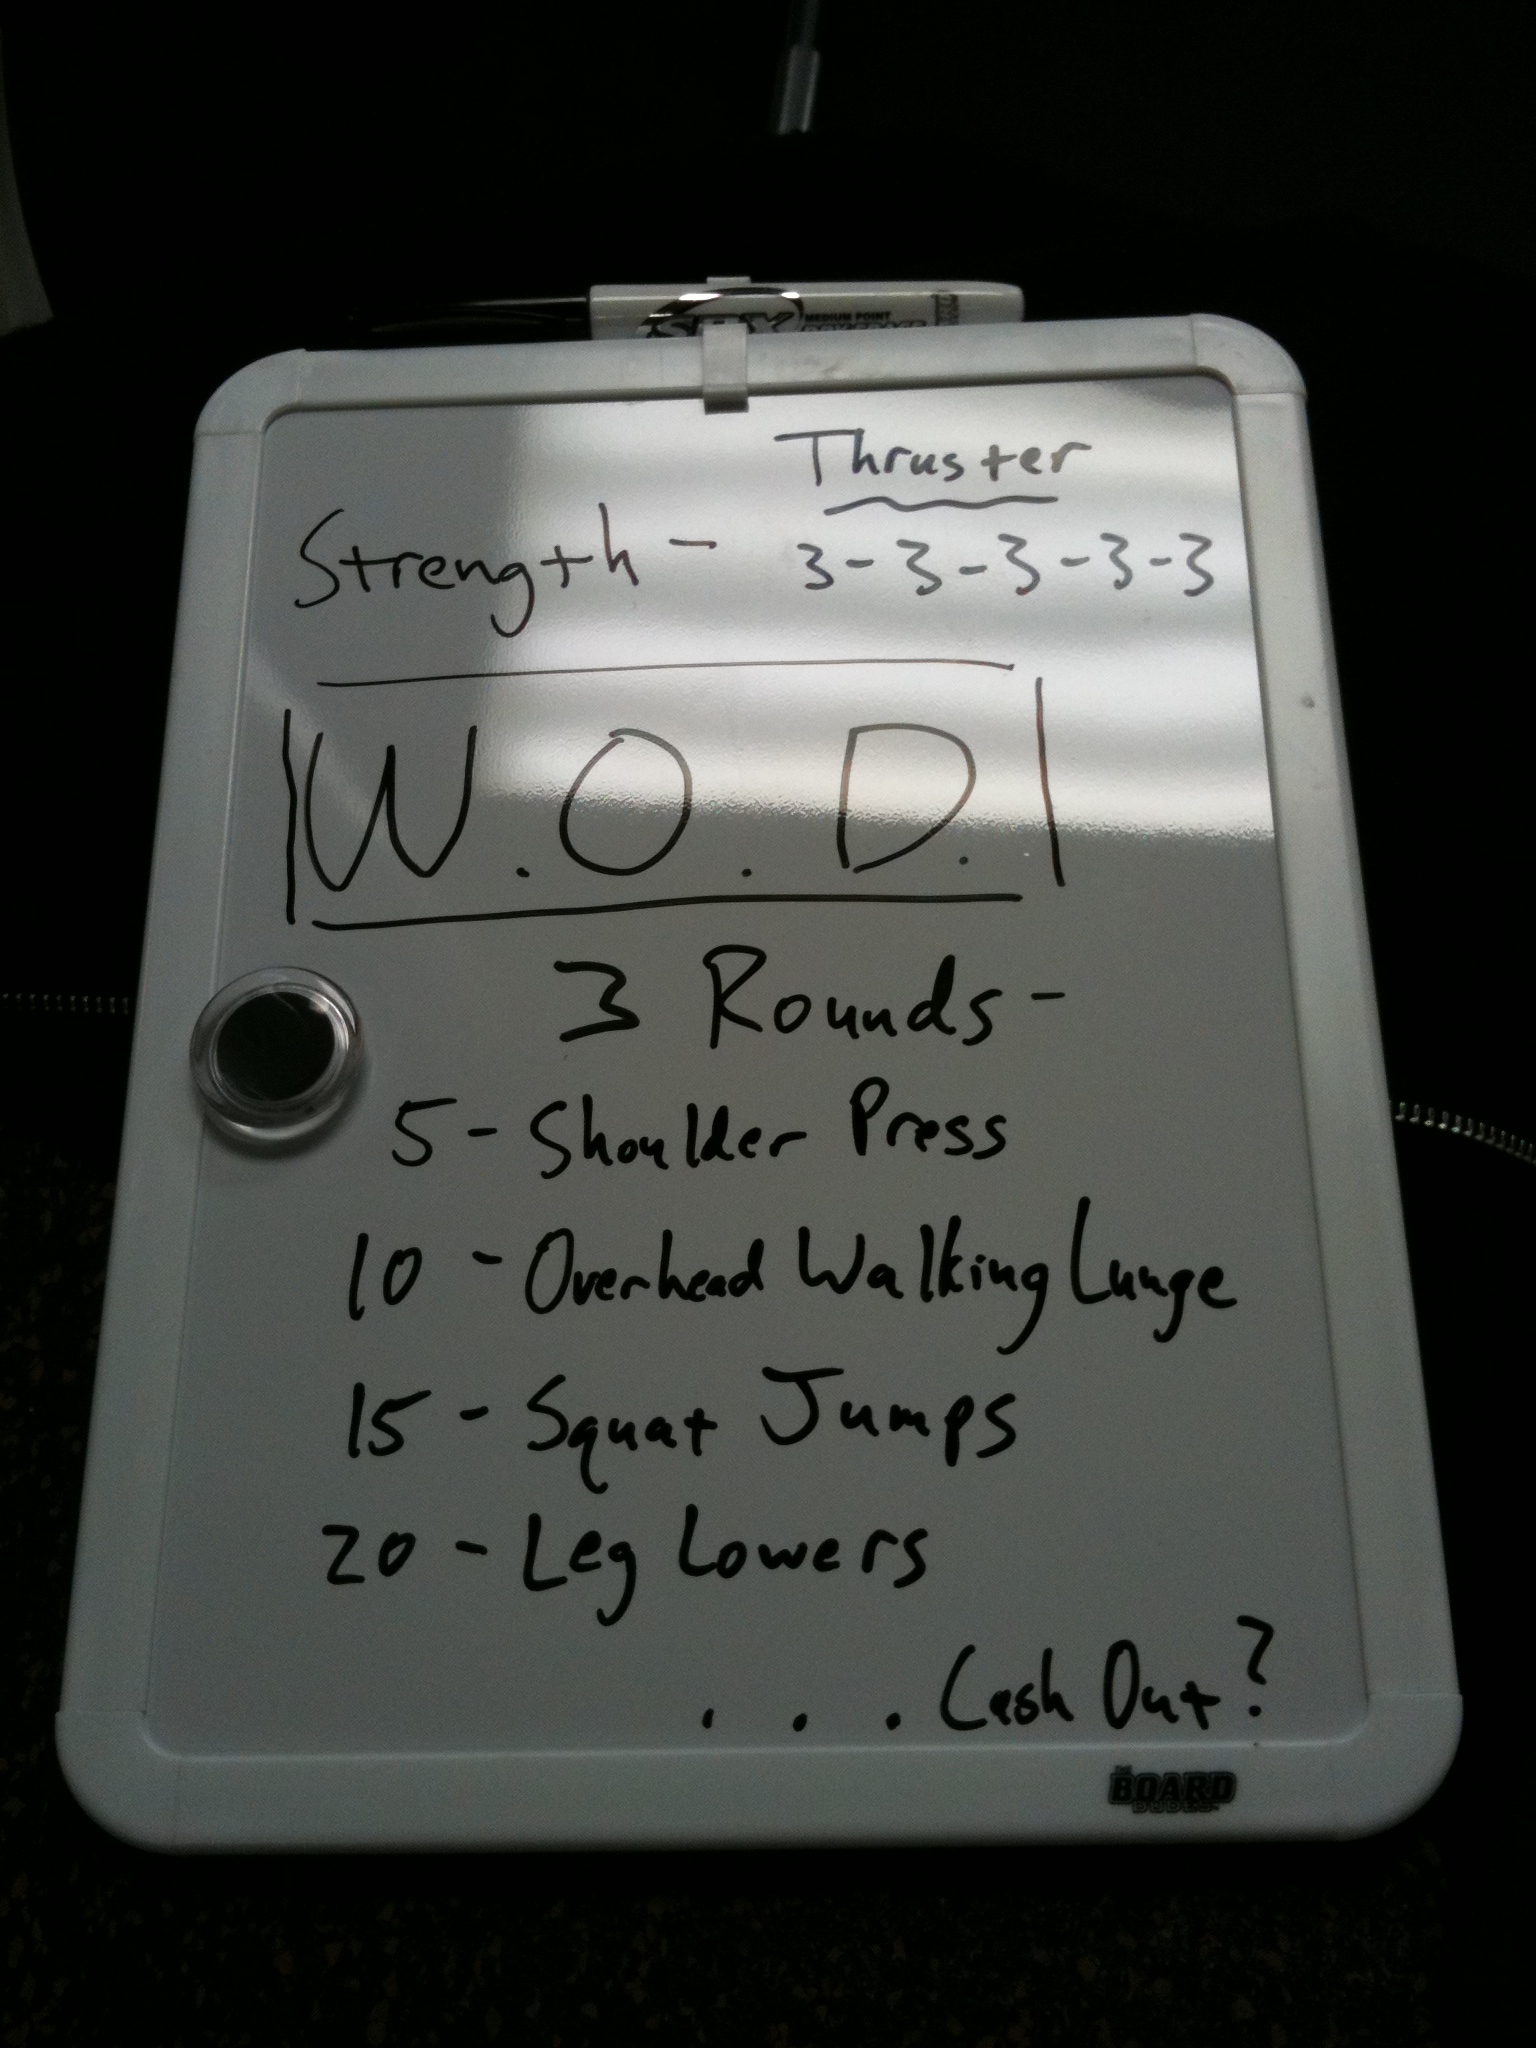 MEDIUM POINT
Thruster
Strength - 3-3-3-3-3
W.O.D.
3 Rounds -
5 - Shoulder Press
10 - Overhead Walking Lunge
15 - Squat Jumps
20 - Leg Lowers
. . . Cash Out?
BOARD
DUDES